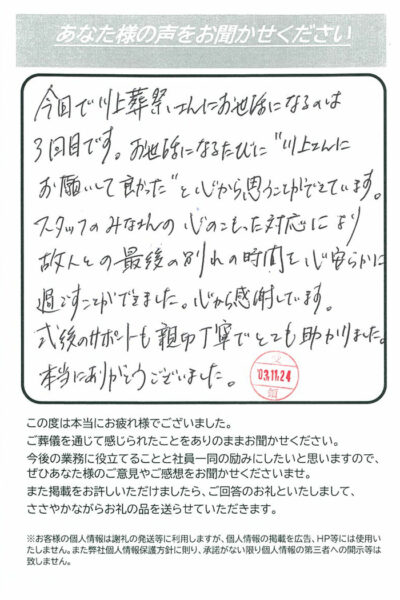 あなた様の声をお聞かせください
今回で川上葬祭さんにお世話になるのは
3回目です。お世話になるたびに"川上さんに
お願いして良かった"と心から思うことができています。
スタッフのみなさんの心のこもった対応により
故人との最後の別れの時間を心安らかに
過ごすことができました。心から感謝しています。
式後のサポートも親切丁寧でとても助かりました。
本当にありがとうございました。
'03.11.24
この度は本当にお疲れ様でございました。
ご葬儀を通じて感じられたことをありのままお聞かせください。
今後の業務に役立てることと社員一同の励みにしたいと思いますので、
ぜひあなた様のご意見やご感想をお聞かせくださいませ。
また掲載をお許しいただけましたら、ご回答のお礼といたしまして、
ささやかながらお礼の品を送らせていただきます。
※お客様の個人情報は謝礼の発送等に利用しますが、個人情報の掲載を広告、HP等には使用い
たしません。また弊社個人情報保護方針に則り、承諾がない限り個人情報の第三者への開示等は
致しません。